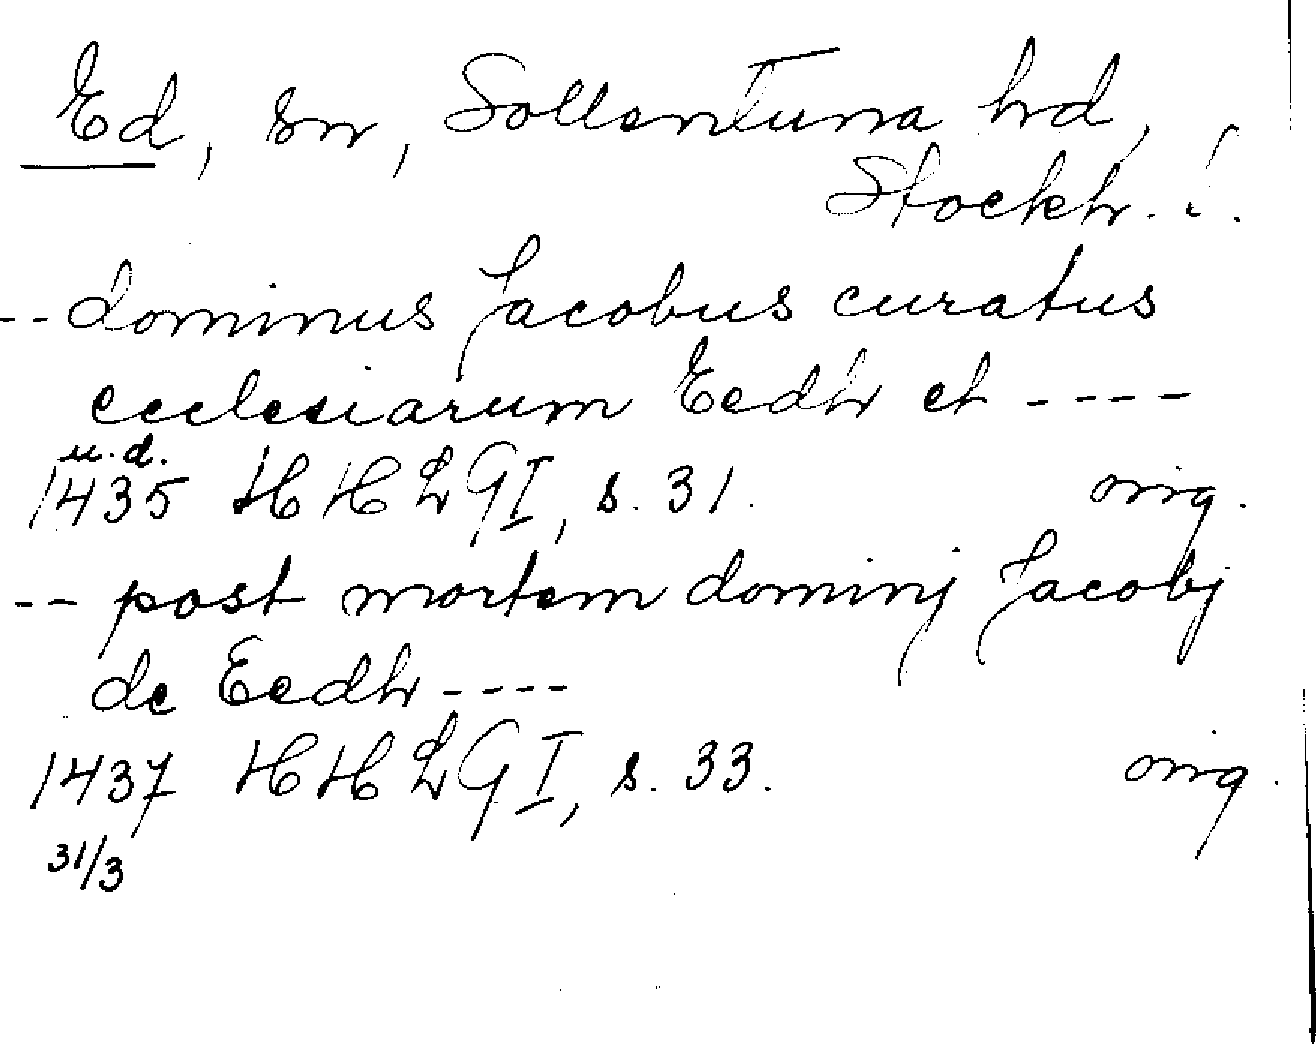 Ed, sn, Sollentuna hrd,
Stockh. l.
-- dominus Jacobus curatus
ecclesiarum Eedh et ----
u.d.
1435 HHLG I, s. 31. orig.
-- post mortem dominj Jacobj
de Eedh ----
1437 HHLG I, s. 33. orig.
31/3